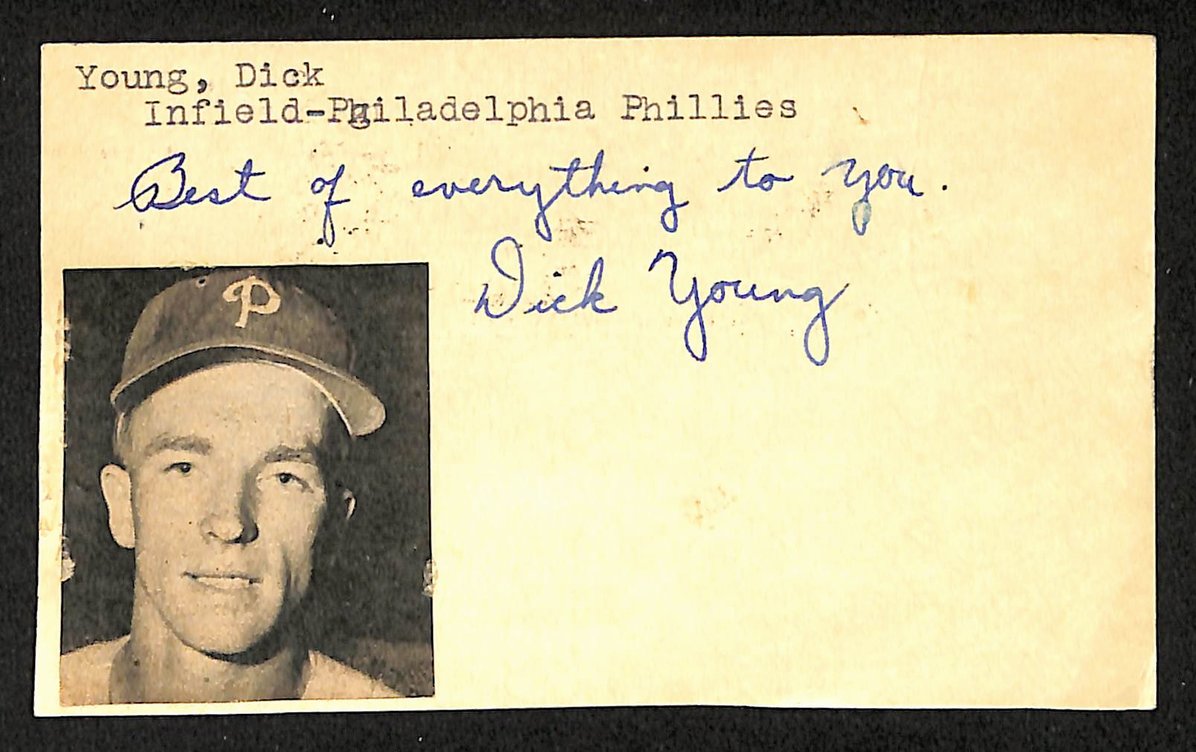 Young, Dick
Infield-Philadelphia Phillies
Best of everything to you.
Dick Young
P